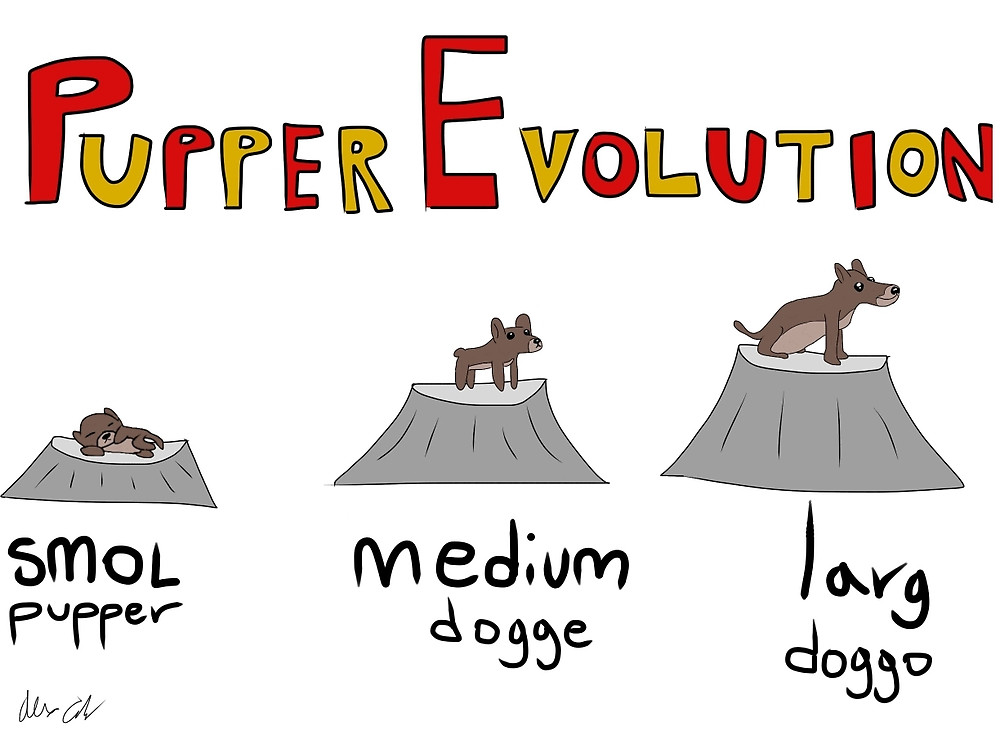 PUPPER EVOLUTION
smol
pupper
medium
dogge
larg
doggo